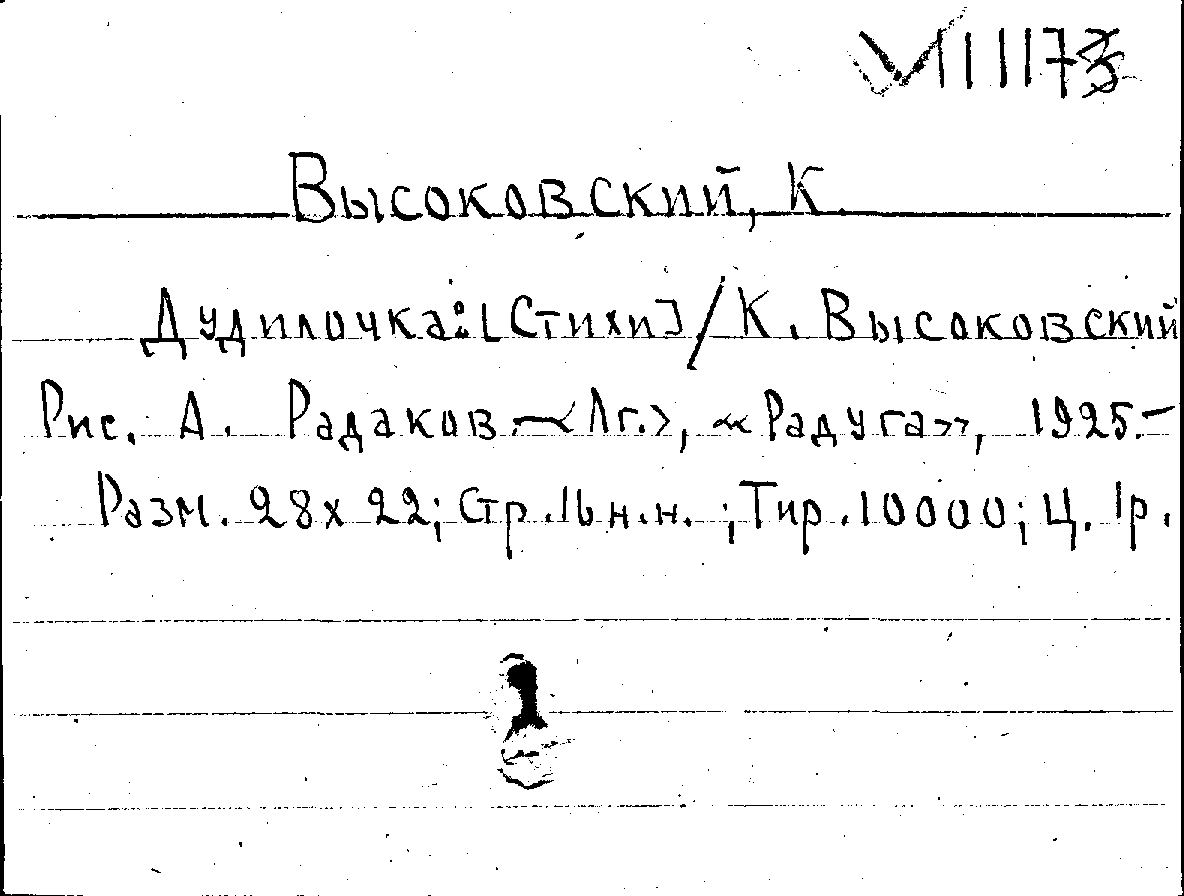 Высоковский, К.
Дудилочка: [Стихи] / К. Высоковский
Рис. А. Радаков. – <Лг.>, «Радуга», 1925. –
Разм. 28х22; Стр. 16 н.н. ; Тир. 10000; Ц. 1р.